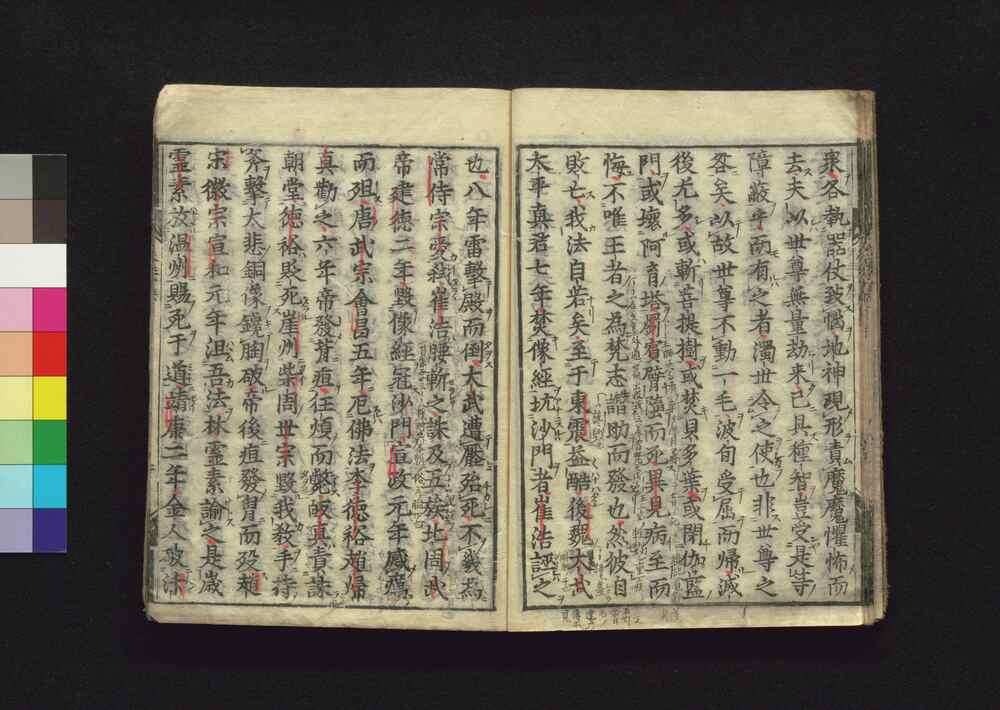 衆各執器仗致惱地神現形責魔魔懼怖而
去夫以世尊無量劫來已具種智豈受是等
障蔽乎而有之者濁世令之使也非世尊之
咎矣以故世尊不動一毛波旬受屈而歸滅
後尤多或斬菩提樹或焚貝多葉或閉伽藍
門或壞阿育塔罽賓臂墮而死果見病至而
悔不唯王者之為梵志諧助而發也然彼自
敗亡我法自若矣至于東震益酷後魏太武
太平真君七年焚像經坑沙門者崔浩誣之
也八年雷擊殿而倒太武遭壓殆死不幾為
常侍宗愛弒崔浩腰斬之誅及五族北周武
帝建德二年毀像經冠沙門宣政元年感癘
而殂唐武宗會昌五年厄佛法李德裕趙歸
真勸之六年帝發背疽狂煩而斃歸真誅
朝堂德裕貶死崖州柴周世宗斃我教手持
斧擊大悲銅像鑱胸破帝後疽發胷而殁趙
宋徽宗宣和元年沮吾法林靈素諭之是歲
靈素放温州賜死于道靖康二年金人攻汴